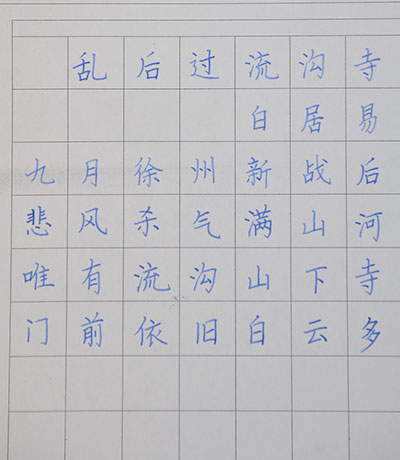 乱后过流沟寺
白居易
九月徐州新战后
悲风杀气满山河
唯有流沟山下寺
门前依旧白云多